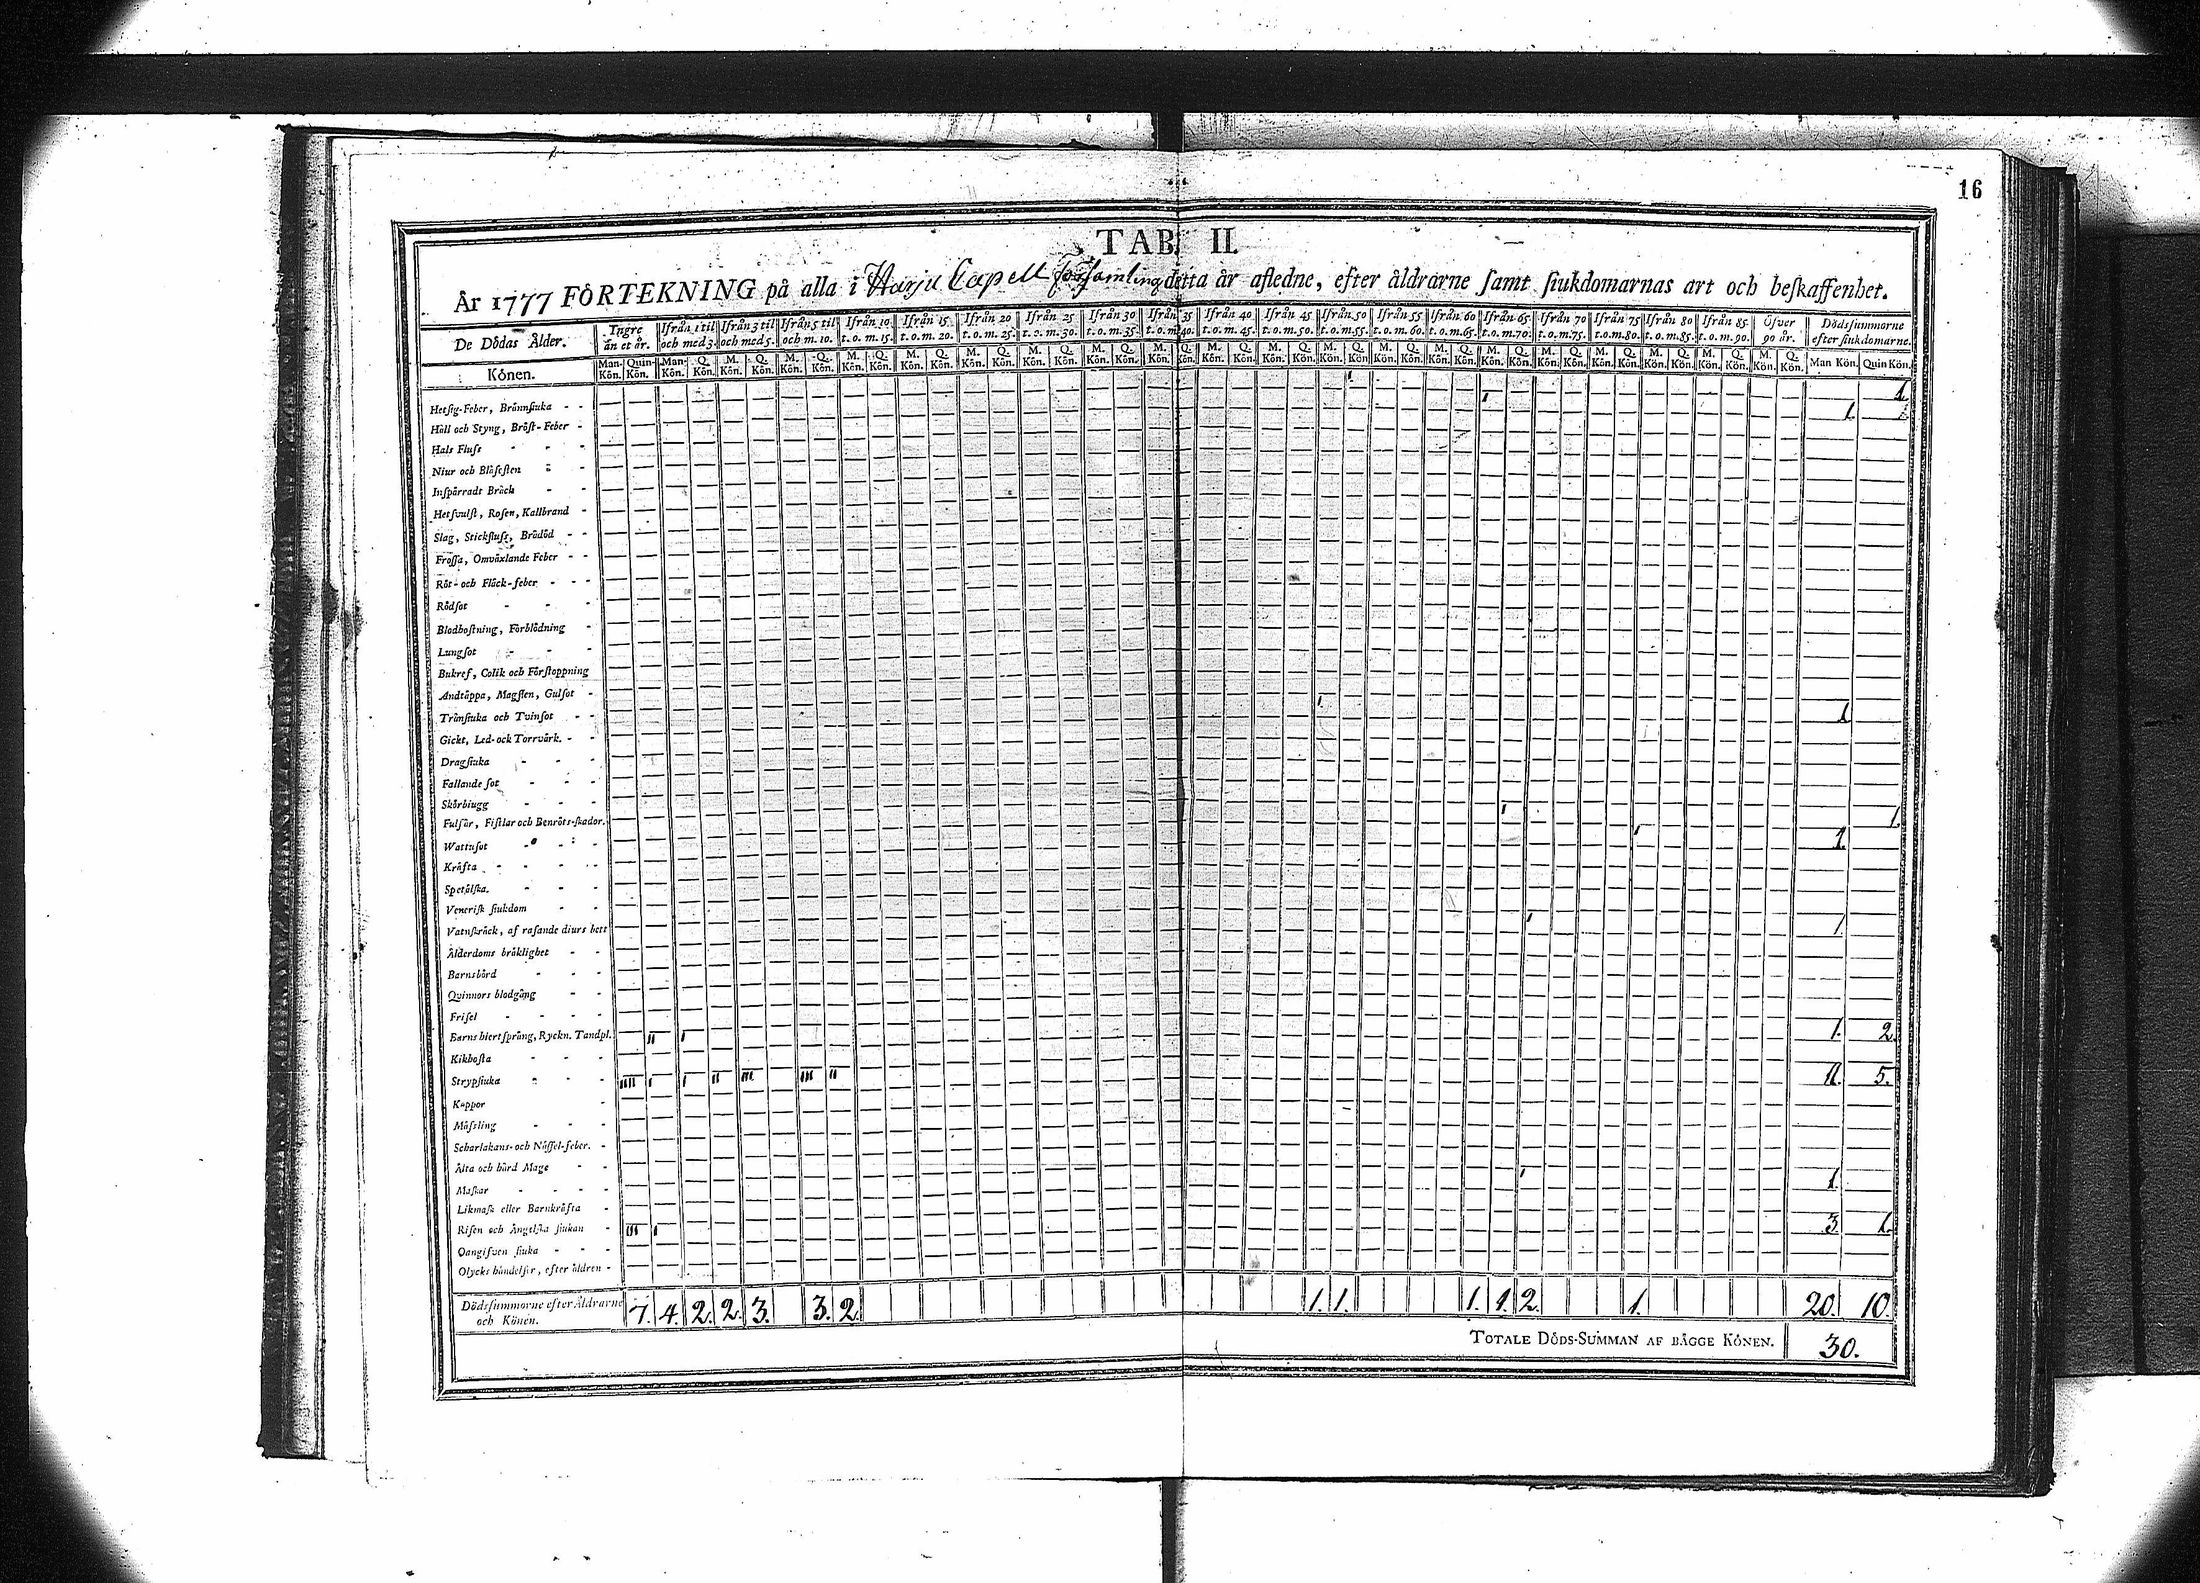 16
TAB II.
År 1777 FÖRTEKNING på alla i Harju Capell församling detta år afledne, efter åldrarne samt siukdomarnas art och beskaffenhet.
De Dödas Ålder. Yngre än et år. Ifrån 1 til och med 3. Ifrån 3 til och med 5. Ifrån 5 til och m. 10. Ifrån 10 t.o.m. 15. Ifrån 15 t.o.m. 20. Ifrån 20 t.o.m. 25. Ifrån 25 t.o.m. 30. Ifrån 30 t.o.m. 35. Ifrån 35 t.o.m. 40. Ifrån 40 t.o.m. 45. Ifrån 45 t.o.m. 50. Ifrån 50 t.o.m. 55. Ifrån 55 t.o.m. 60. Ifrån 60 t.o.m. 65. Ifrån 65 t.o.m. 70. Ifrån 70 t.o.m. 75. Ifrån 75 t.o.m. 80. Ifrån 80 t.o.m. 85. Ifrån 85 t.o.m. 90. Öfver 90 år. Dödssummorne efter siukdomarne.
Könen. Man-Kön. Quin-Kön. Man-Kön. Q. Kön. M. Kön. Q. Kön. M. Kön. Q. Kön. M. Kön. Q. Kön. M. Kön. Q. Kön. M. Kön. Q. Kön. M. Kön. Q. Kön. M. Kön. Q. Kön. M. Kön. Q. Kön. M. Kön. Q. Kön. M. Kön. Q. Kön. M. Kön. Q. Kön. M. Kön. Q. Kön. M. Kön. Q. Kön. M. Kön. Q. Kön. M. Kön. Q. Kön. M. Kön. Q. Kön. M. Kön. Q. Kön. M. Kön. Q. Kön. M. Kön. Q. Kön. Man Kön. Quin Kön.
Hetsig-Feber, Brännsiuka 1.
Håll och Styng, Bröst-Feber 1.
Hals Fluss
Niur och Blåsesten
Inspärradt Bråck
Hetsvulst, Rosen, Kallbrand
Slag, Stickfluss, Brådöd
Frossa, Omväxlande Feber
Röt- och Fläck-feber
Rödsot
Blodhostning, Förblödning
Lungsot
Bukref, Colik och Förstoppning
Andtäppa, Magsten, Gulsot
Trånsiuka och Tvinsot 1
Gickt, Led- ock Torrvärk.
Dragsiuka
Fallande sot
Skörbiugg
Fulsår, Fistlar och Benröts-skador. 1.
Wattusot 1.
Kräfta
Spetälska.
Venerisk siukdom
Vatnskräck, af rasande diurs bett 1
Ålderdoms bräklighet
Barnsbörd
Quinnors blodgång
Frisel
Barns hiertsprång, Ryckn. Tandpl. II I 1. 2.
Kikhosta
Strypsiuka IIII I I II III III II 11. 5.
Koppor
Mässling
Scharlakans- och Näffel-feber.
Älta och hård Mage
Maskar 1.
Likmask eller Barnkräfta
Risen och Ängelska siukan III I 3. 1.
Oangifven siuka
Olycks händelser, efter åldren
Dödssummorne efter Åldrarne och Könen. 7. 4. 2. 2. 3. 3. 2. 1. 1. 1. 1. 2. 1. 20. 10.
TOTALE DÖDS-SUMMAN AF BÄGGE KÖNEN. 30.